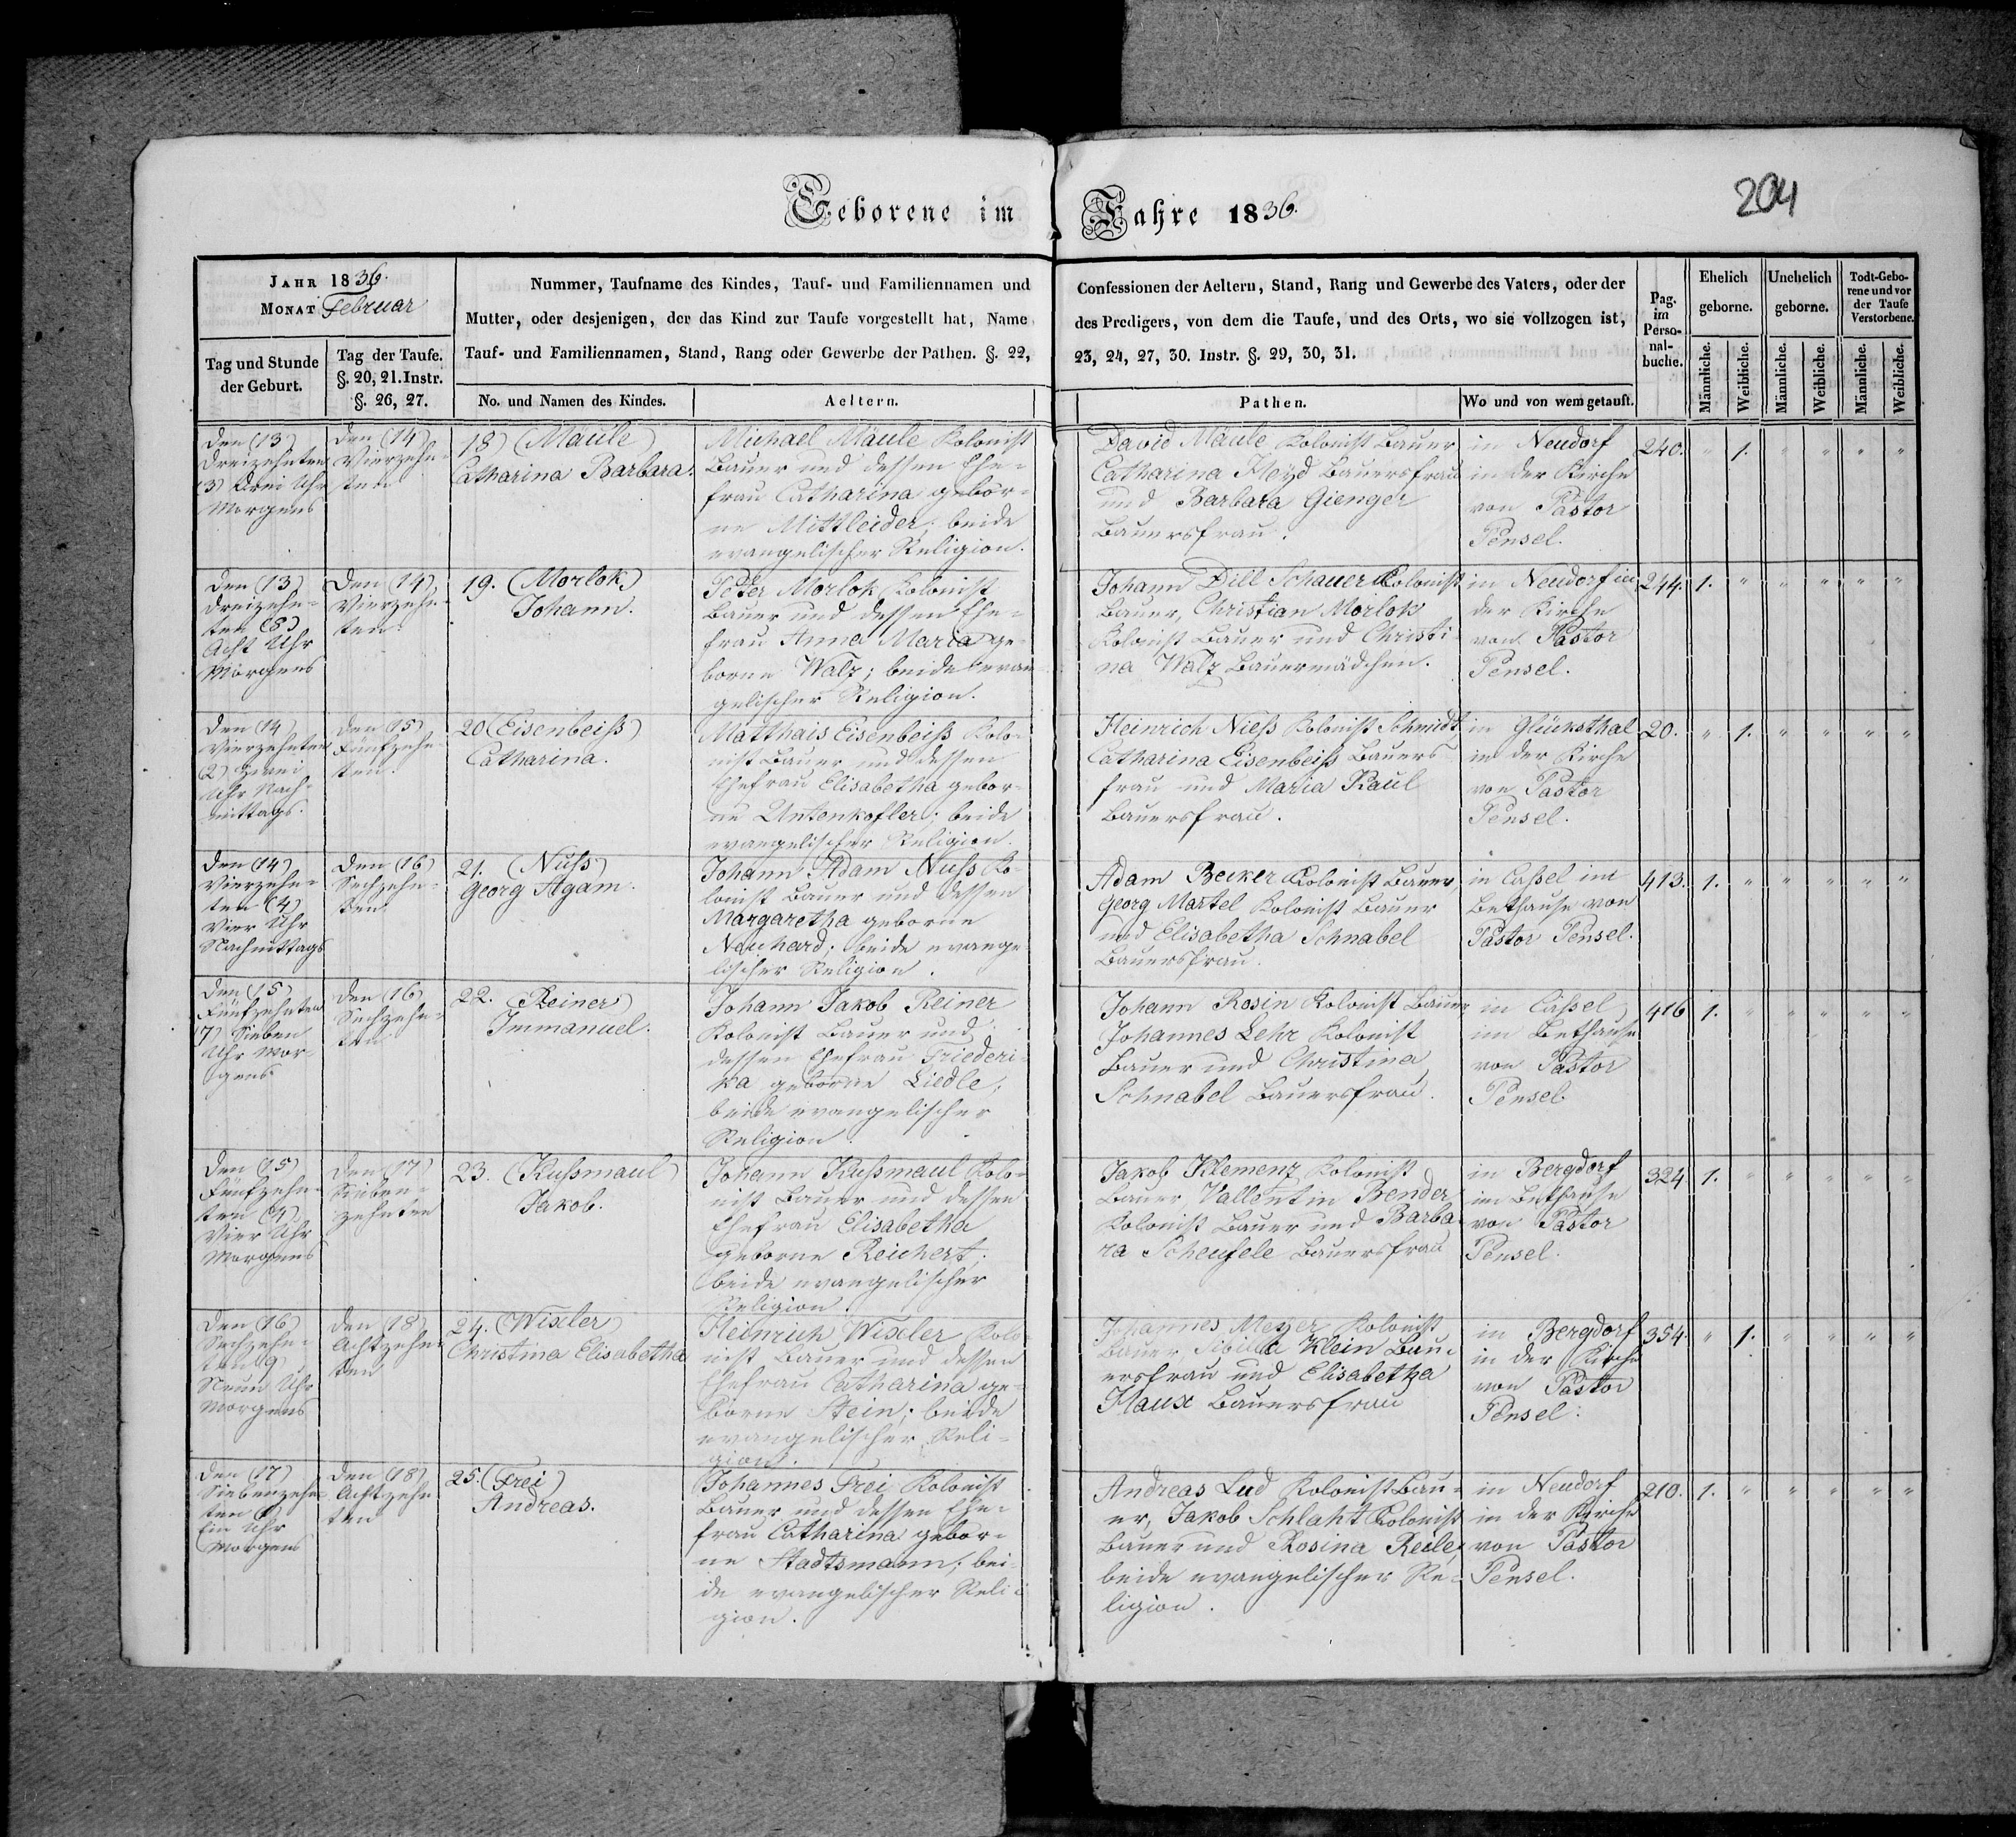 Geborene im Jahre 1836.
204
JAHR 1836.
MONAT Februar
Tag und Stunde
der Geburt.
Tag der Taufe.
§. 20, 21. Instr.
§. 26, 27.
Nummer, Taufname des Kindes, Tauf- und Familiennamen und
Mutter, oder desjenigen, der das Kind zur Taufe vorgestellt hat, Name
Tauf- und Familiennamen, Stand, Rang oder Gewerbe der Pathen. §. 22,
No. und Namen des Kindes.
Aeltern.
Confessionen der Aeltern, Stand, Rang und Gewerbe des Vaters, oder der
des Predigers, von dem die Taufe, und des Orts, wo sie vollzogen ist,
23, 24, 27, 30. Instr. §. 29, 30, 31.
Pathen.
Wo und von wem getauft.
Pag.
im
Perso-
nal-
buche.
Ehelich
geborne.
Unehelich
geborne.
Todt-Gebo-
rene und vor
der Taufe
Verstorbene.
Männliche.
Weibliche.
Männliche.
Weibliche.
Männliche.
Weibliche.
Den (13)
Dreizehnten
(3) Drei Uhr
Morgens
Den (14)
Vierzehn-
ten
18) (Mäule)
Catharina Barbara.
Michael Mäule Kolonist
Bauer und dessen Ehe-
frau Catharina gebor-
ne Mittleider; beide
evangelischer Religion.
David Mäule Kolonist Bauer
Catharina Heyd Bauersfrau
und Barbara Gienger
Bauersfrau.
in Neudorf
in der Kirche
von Pastor
Pensel.
240. " 1. " " " "
Den (13)
Dreizehn-
ten (8)
Acht Uhr
Morgens
Den (14)
Vierzehn-
ten.
19. (Morlok)
Johann.
Peter Morlok Kolonist
Bauer und dessen Ehe-
frau Anna Maria ge-
borne Walz; beide evan
gelischer Religion.
Johann Dill Schauer Kolonist
Bauer, Christian Morlok
Kolonist Bauer und Christi-
na Walz Bauermädchen.
in Neudorf in
der Kirche
von Pastor
Pensel.
244. 1. " " " " "
Den (14)
Vierzehnten
(2) Zwei
Uhr Nach-
mittags.
Den (15)
Fünfzehn-
ten.
20 (Eisenbeiß)
Catharina.
Matthais Eisenbeiß Kolo-
nist Bauer und dessen
Ehefrau Elisabetha gebor-
ne Untenkofler; beide
evangelischer Religion.
Heinrich Nieß Kolonist Schmidt
Catharina Eisenbeiß Bauers
frau und Maria Raul
Bauersfrau.
in Glücksthal
in der Kirche
von Pastor
Pensel.
20. " 1. " " " "
Den (14)
Vierzehn-
ten (4)
Vier Uhr
Nachmittags
Den (16)
Sechzehn-
ten
21. (Nuß)
Georg Agam.
Johann Adam Nuß Ko-
lonist Bauer und dessen
Margaretha geborne
Neuhard; beide evange-
lischer Religion.
Adam Becker Kolonist Bauer
Georg Martel Kolonist Bauer
und Elisabetha Schnabel
Bauersfrau.
in Caßel im
Bethause von
Pastor Pensel.
413. 1. " " " " "
Den (15)
Fünfzehnten
(7) Sieben
Uhr Mor-
gens
Den (16)
Sechzehn-
ten
22. (Reiner)
Immanuel.
Johann Jakob Reiner
Kolonist Bauer und
dessen Ehefrau Friederi-
ka geborne Liedle;
beide evangelischer
Religion.
Johann Rosin Kolonist Bauer
Johannes Lehr Kolonist
Bauer und Christina
Schnabel Bauersfrau.
in Caßel
im Bethause
von Pastor
Pensel.
416 1. " " " " "
Den (15)
Fünfzehn-
ten (4)
Vier Uhr
Morgens
Den (17)
Sieben-
zehnten
23. (Kußmaul)
Jakob.
Johann Kußmaul Kolo-
nist Bauer und dessen
Ehefrau Elisabetha
geborne Reichert;
beide evangelischer
Religion.
Jakob Klemenz Kolonist
Bauer, Vallentin Bender
Kolonist Bauer und Barba-
ra Scheufele Bauersfrau
in Bergdorf
im Bethause
von Pastor
Pensel.
324 1. " " " " "
Den (16)
Sechzehn-
ten (9)
Neun Uhr
Morgens
Den (18)
Achtzehn-
ten
24. (Wixler)
Christina Elisabetha
Heinrich Wixler Kolo-
nist Bauer und dessen
Ehefrau Catharina ge-
borne Stein; beide
evangelischer Reli-
gion.
Johannes Meyer Kolonist
Bauer, Sibilla Klein Bau-
ersfrau und Elisabetha
Haux Bauersfrau
in Bergdorf
in der Kirche
von Pastor
Pensel.
354. " 1. " " " "
Den (17)
Siebenzehn-
ten (1)
Ein Uhr
Morgens
Den (18)
Achtzehn
ten
25. (Frei)
Andreas.
Johannes Frei Kolonist
Bauer und dessen Ehe-
frau Catharina gebor-
ne Stadtsmann; bei-
de evangelischer Reli-
gion.
Andreas Lud Kolonist Bau-
er, Jakob Schlaht Kolonist
Bauer und Rosina Reile,
beide evangelischer Re-
ligion.
in Neudorf
in der Kirche
von Pastor
Pensel.
210. 1. " " " " "